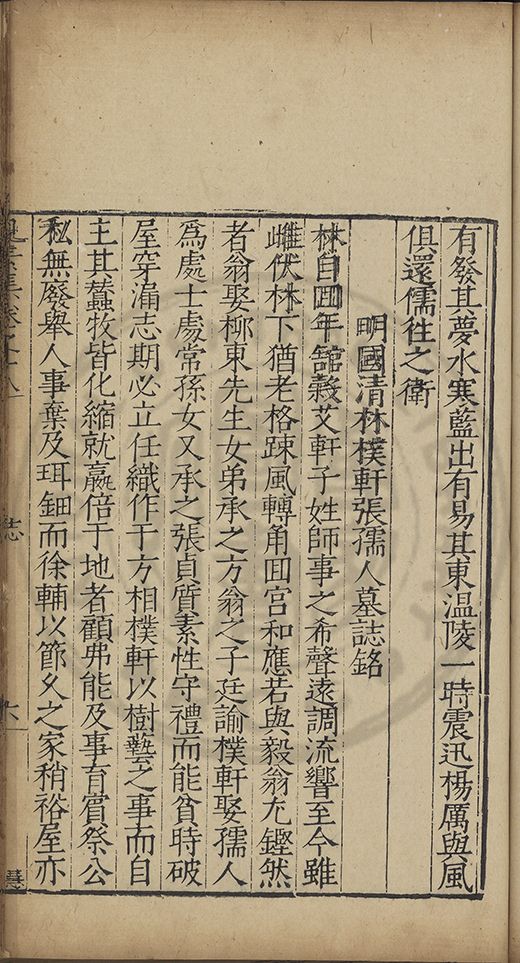 有發其夢水寒藍出有易其東温陵一時震迅楊厲與風
俱還儒徃之衛
明國清林樸軒張孺人墓誌銘
林自囬年舘榖艾軒子姓師事之希聲遠調流響至今雖
雌伏林下猶老格踈風轉角囬宮和應若與毅翁尤鏗然
者翁娶柳東先生女弟承之方翁之子廷諭樸軒娶孺人
爲處士處常孫女又承之張貞質素性守禮而能貧時破
屋穿漏志期必立任織作于方相樸軒以樹藝之事而自
主其蠶牧皆化縮就羸倍于地者顧弗能及事育賓祭公
私無廢舉人事棄及珥鈿而徐輔以節乆之家稍裕屋亦
集卷之八
志
六
慧